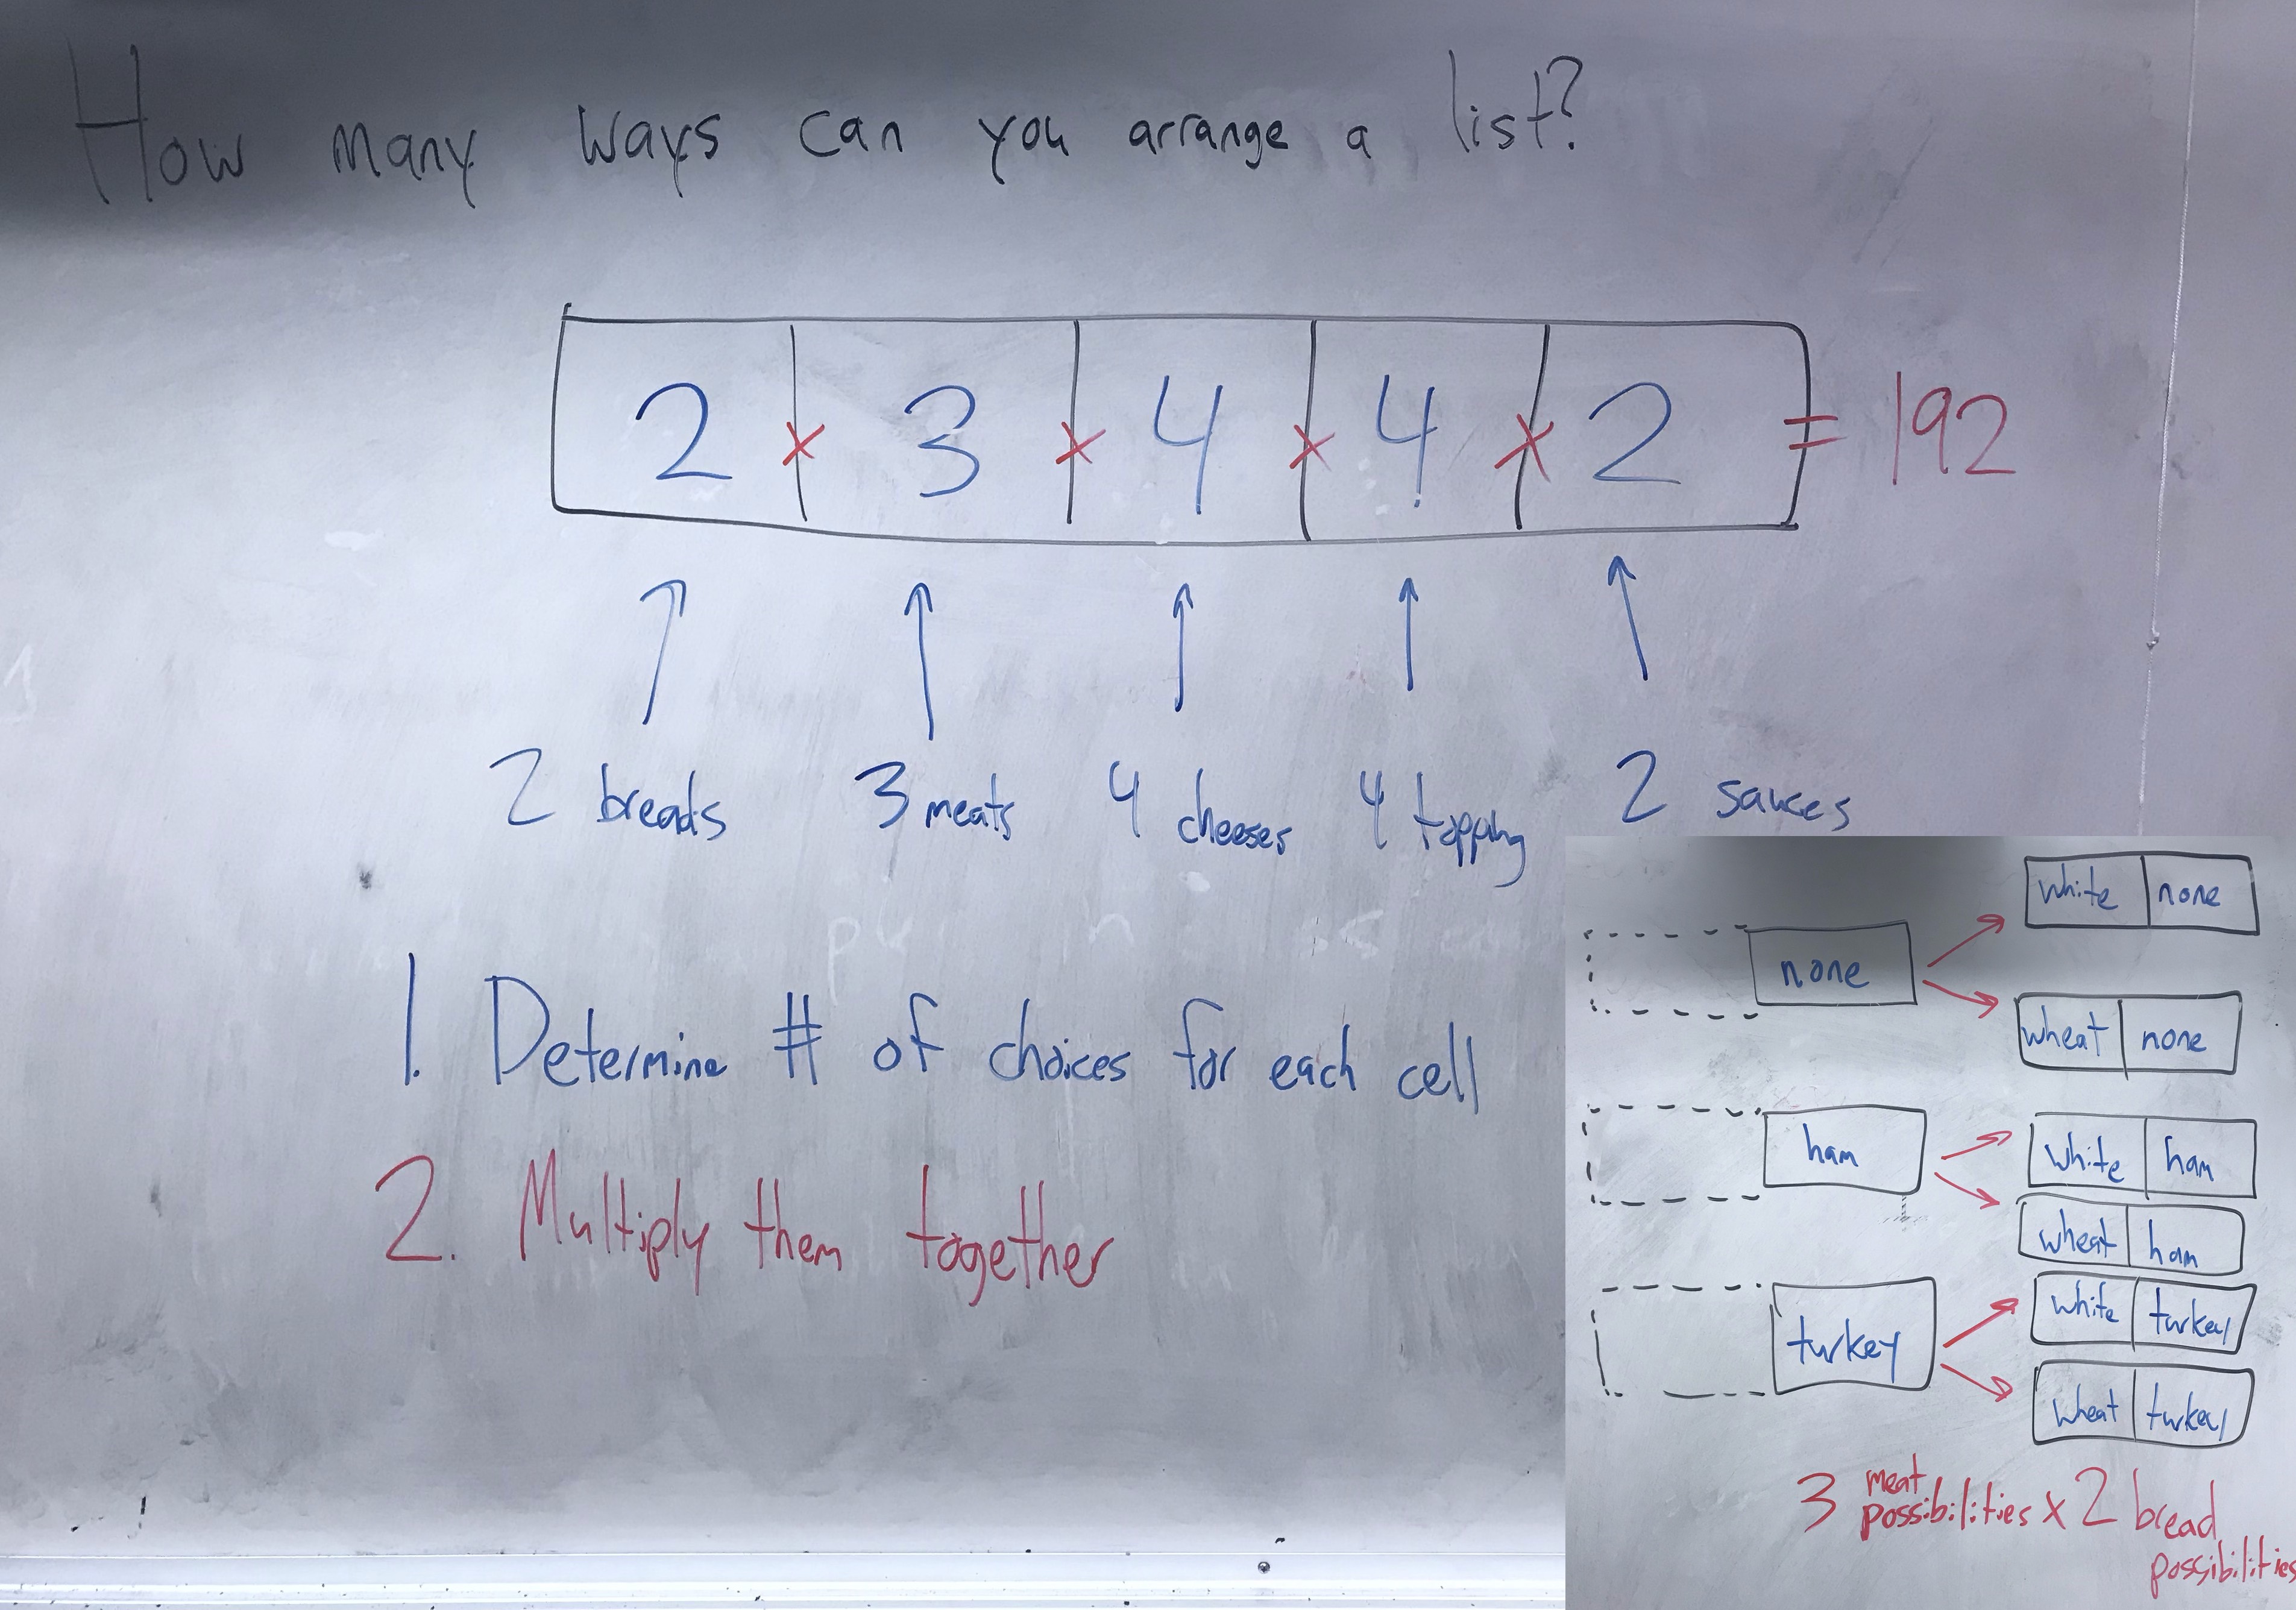 How many ways can you arrange a list?
2 × 3 × 4 × 4 × 2 = 192
2 breads 3 meats 4 cheeses 4 topping 2 sauces
1. Determine # of choices for each cell
2. Multiply them together
none
white none
wheat none
ham
white ham
wheat ham
turkey
white turkey
wheat turkey
3 meat possibilities × 2 bread
possibilities